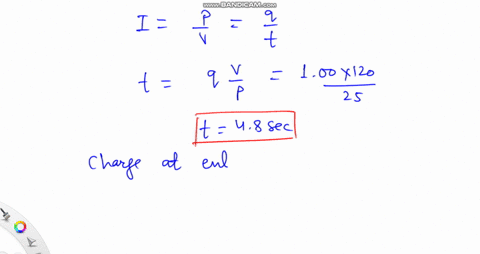 WWW.BANDICAM.COM
I = P/V = q/t
t = q V/P = 1.00 × 120 / 25
t = 4.8 sec
Charge at enl